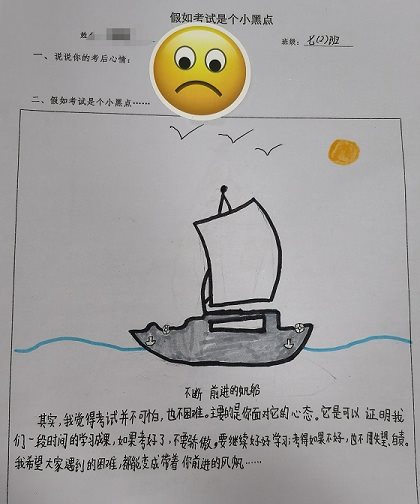 假如考试是个小黑点
姓名
班级：七(2)班
一、说说你的考后心情：
二、假如考试是个小黑点……
不断 前进的帆船
其实，我觉得考试并不可怕，也不困难。主要的是你面对它的心态。它是可以 证明我
们一段时间的学习成果，如果考好了，不要骄傲。要继续好好学习；考得如果不好，也不用失望、自卑。
我希望大家遇到的困难，都能变成带着 你前进的风帆……